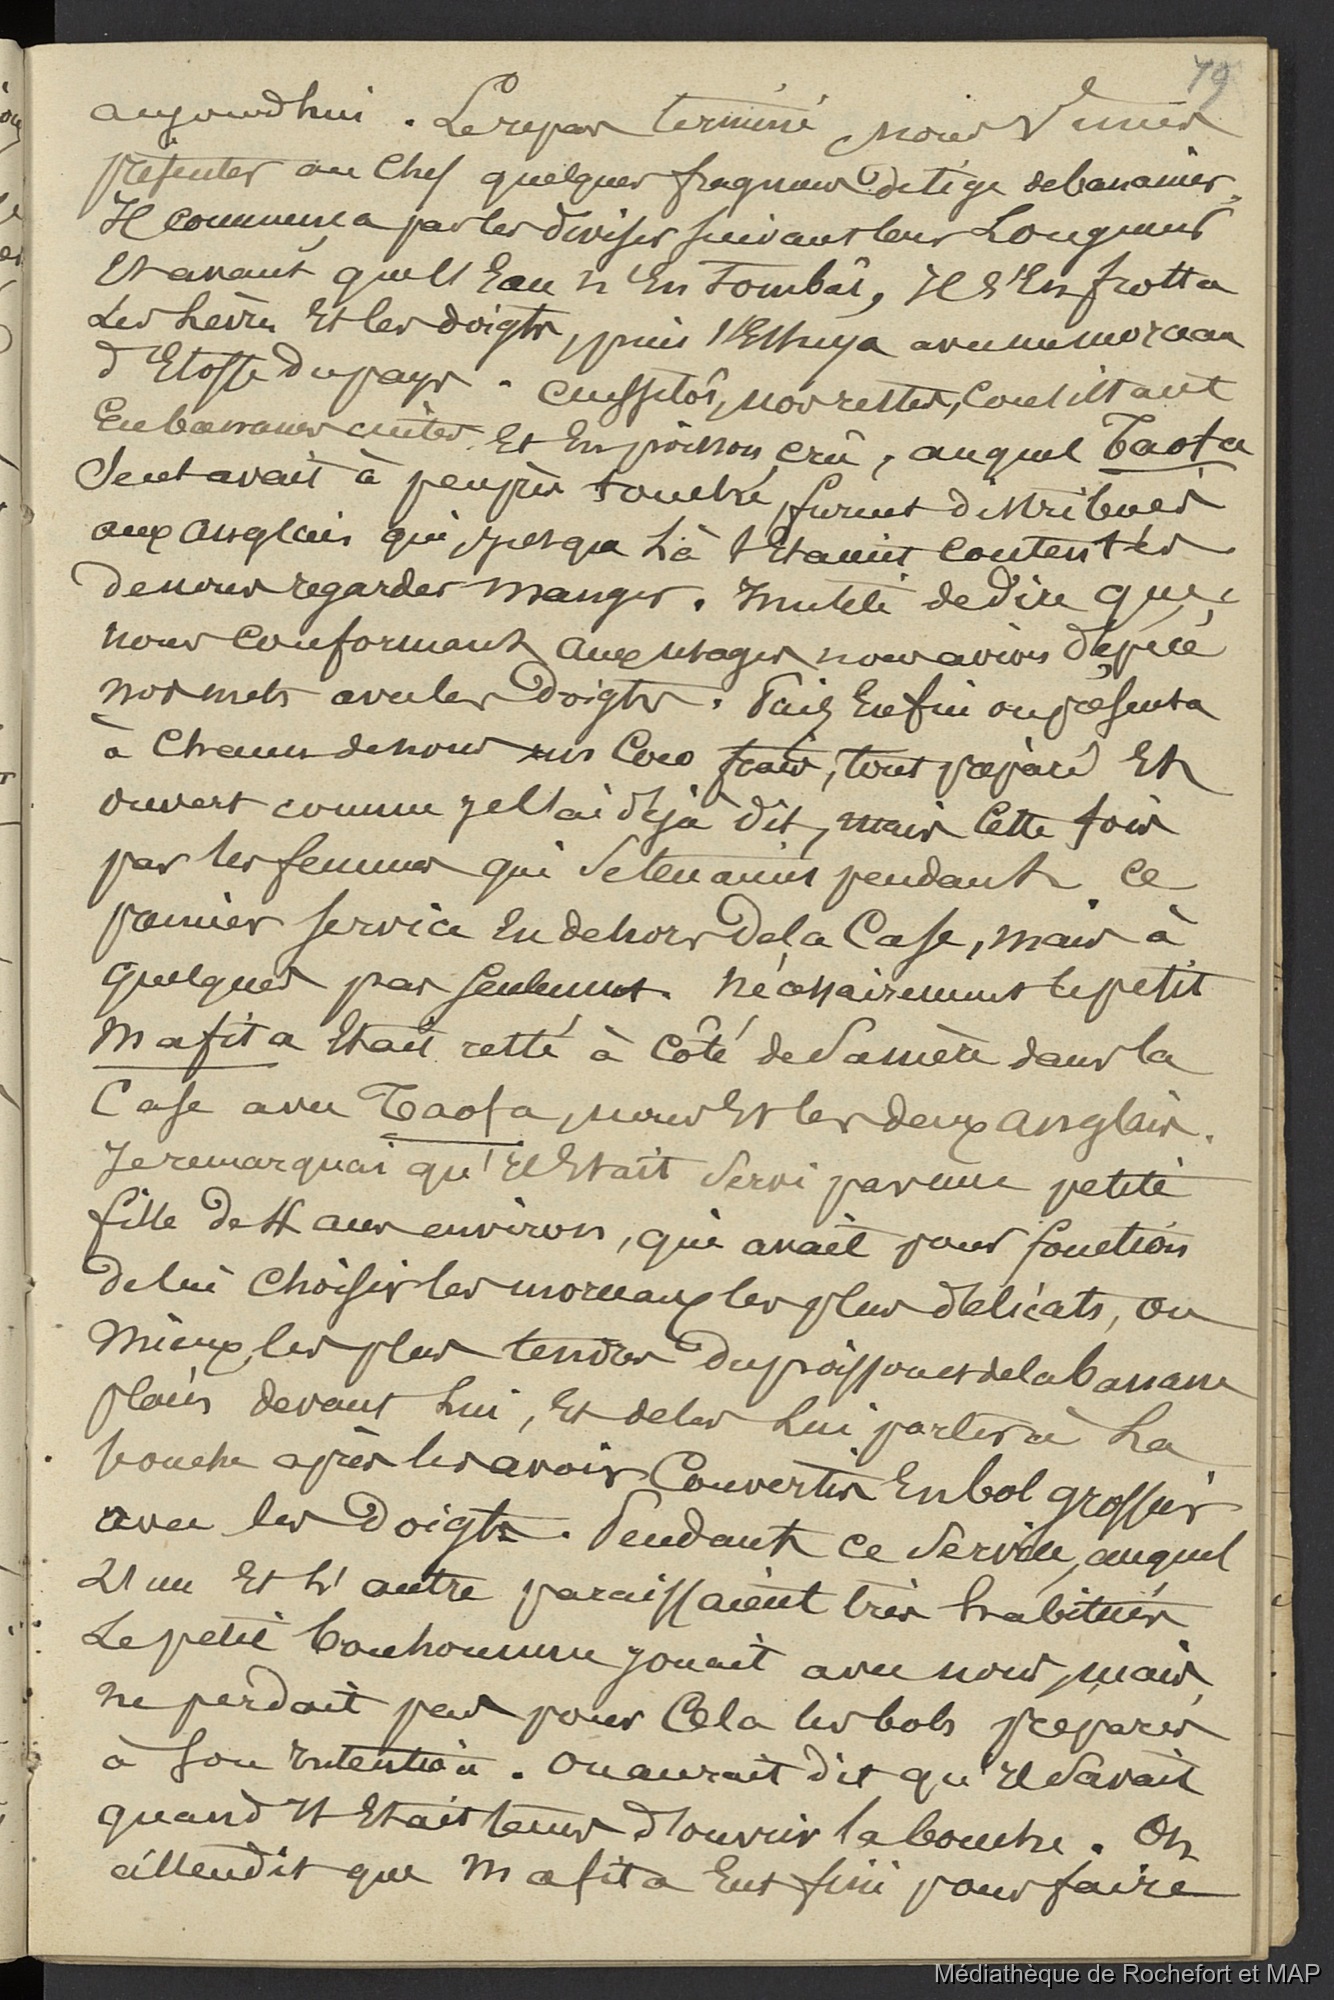 79
aujourdhui. Le repas terminé, nous vimes
présenter au Chef quelques fragmens de tige de bananier.
Il commença par les diviser suivant leur Longueur
Et avant que l'Eau n'En tombât, Il s'En frotta
Les Lèvres Et les doigts, puis s'Essuya avec un morceau
d'Etoffe du pays. aussitôt, nos restes, consistant
En bananes cuites Et En poisson crû, auquel Taofa
seul avait à peu près touché, furent distribués
aux anglais qui jusque là s'Etaient contentés
de nous regarder manger. Inutile de dire que,
nous conformant aux usages nous avions dépecé
nos mets avec les doigts. Puis Enfin on présenta
à Chacun de nous un Coco frais, tout préparé Et
ouvert comme je l'ai déjà dit, mais Cette fois
par les femmes qui se tenaient pendant ce
premier service En dehors de la Case, mais à
quelques pas seulement. Nécessairement le petit
Mafita Etait resté à côté de sa mère dans la
Case avec Taofa, nous Et les deux anglais.
Je remarquai qu'Il Etait servi par une petite
fille de 4 ans environ, qui avait pour fonction
de lui Choisir les morceaux les plus délicats, ou
Mieux, les plus tendres du poisson et de la banane
placés devant Lui, Et de les Lui porter à La
bouche après les avoir Convertis En bol grossier
avec les doigts. Pendant ce service, auquel
L'un Et L'autre paraissaient très habitués
Le petit bonhomme jouait avec nous, mais,
ne perdait pas pour Cela les bols préparés
à son Intention. On aurait dit qu'Il savait
quand Il Etait tems d'ouvrir la bouche. On
attendit que Mafita Eut fini pour faire
Médiathèque de Rochefort et MAP